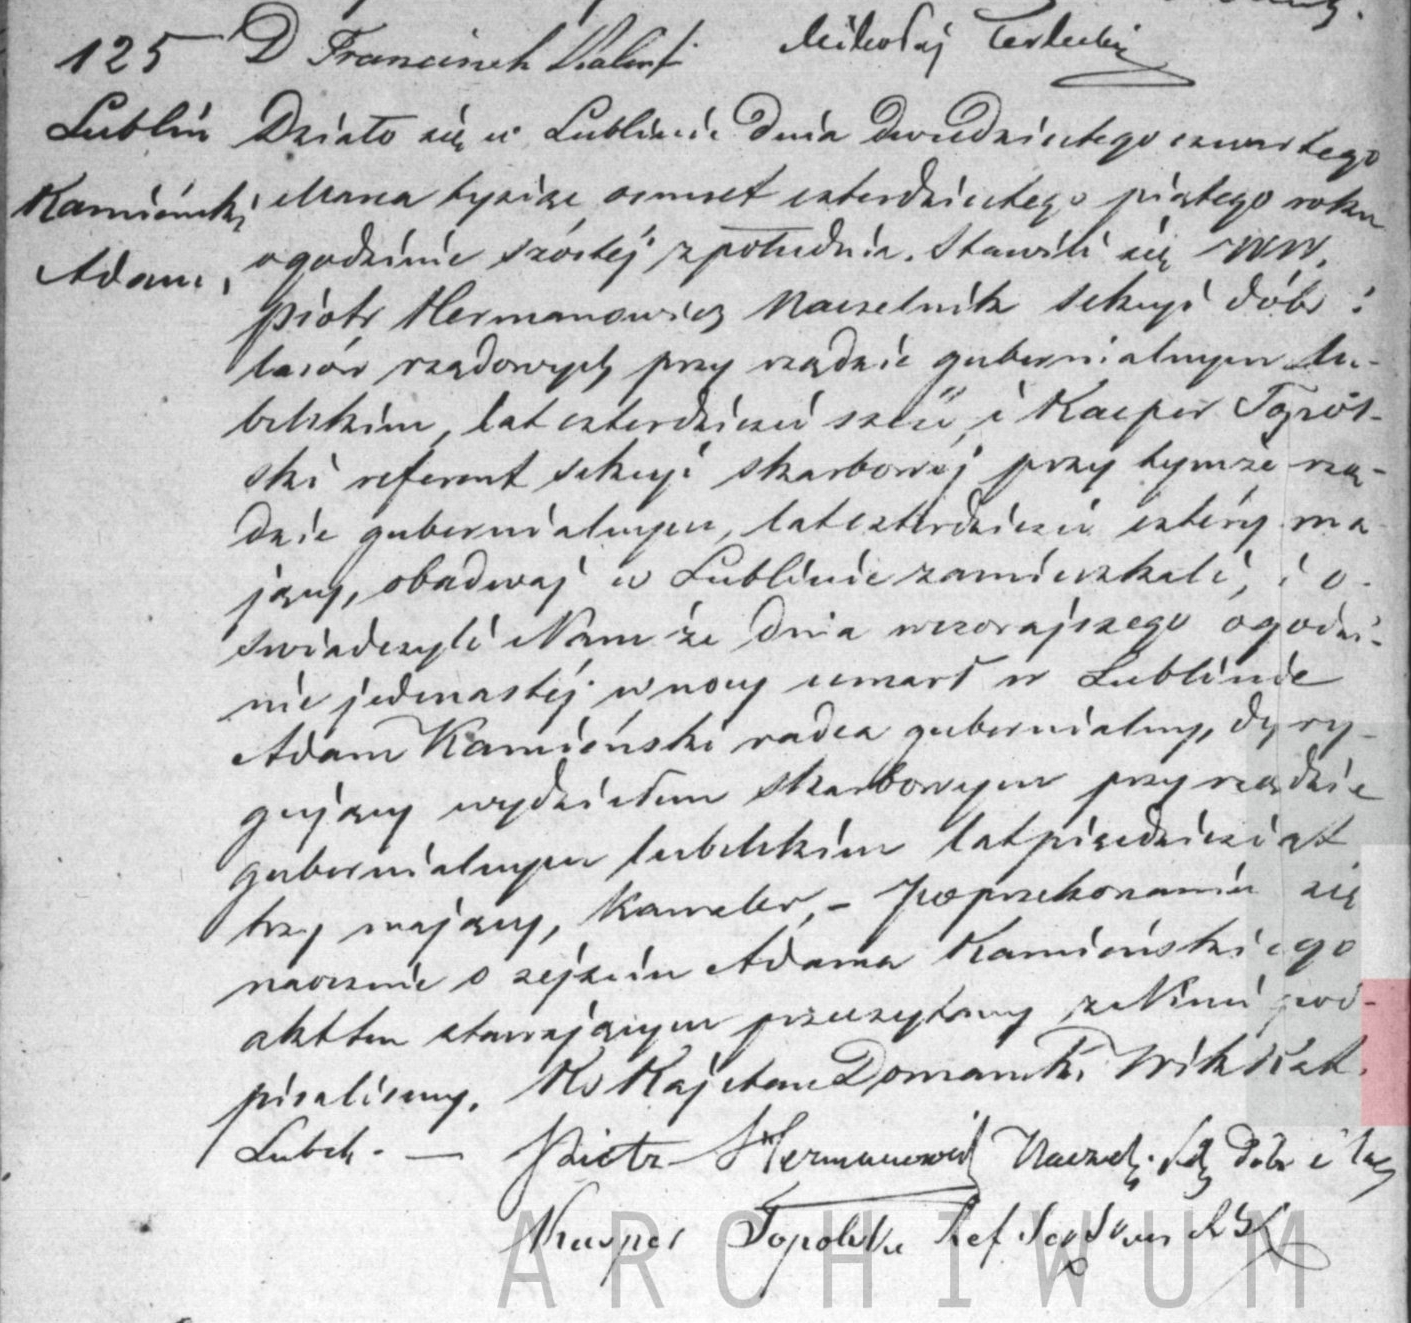 125 D Franciszek
Mikołaj
Lublin Działo się w Lublinie dnia dwudziestego czwartego
Kamiénski Marca tysiąc ośmset czterdziestego piątego roku
Adam, o godzinie szóstéj z południa. Stawili się WW.
Piotr Hermanowicz Naczelnik sekcyi dóbr i
lasów rządowych przy rządzie gubernialnym lu-
belskim, lat czterdzieści sześć, i Kacper Topól-
ski referent sekcyi skarbowéj przy tymże rzą-
dzie gubernialnym, lat czterdzieści cztéry ma-
jący, obadwaj w Lublinie zamieszkali, i o-
świadczyli Nam że dnia wczorajszego o godzi-
nie jedenastéj w nocy umarł w Lublinie
Adam Kamiénski radca gubernialny, dyry-
gujący wydziałem skarbowym przy rządzie
gubernialnym lubelskim lat pięcdziesiąt
trzy mający, kawaler, - Po przekonaniu się
naocznie o zejściu Adama Kamiénskiego
akt ten stawającym przeczytany z Nimi pod-
pisaliśmy. Ks Kajetan Domański Wik Kat.
Lubel. — Piotr Hermanowicz Naczel. Dóbr i Las
Kacper Topolski Ref
ARCHIWUM